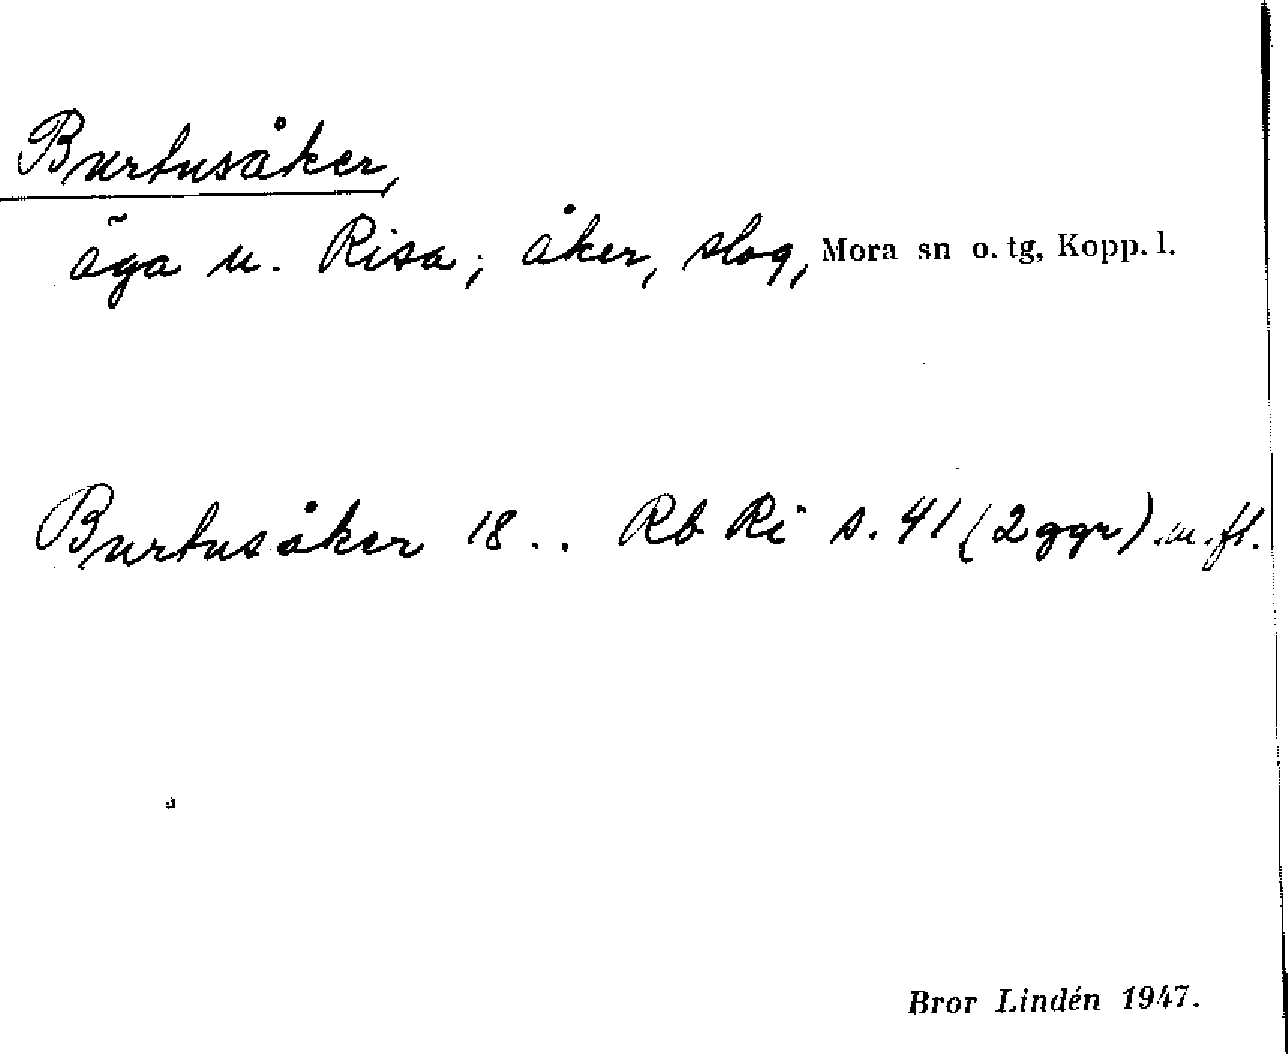 Burtusåker,
äga u. Risa; åker, slog, Mora sn o. tg, Kopp. l.
Burtusåker 18.. Rb Ri s. 41 (2 ggr) m. fl.
Bror Lindén 1947.